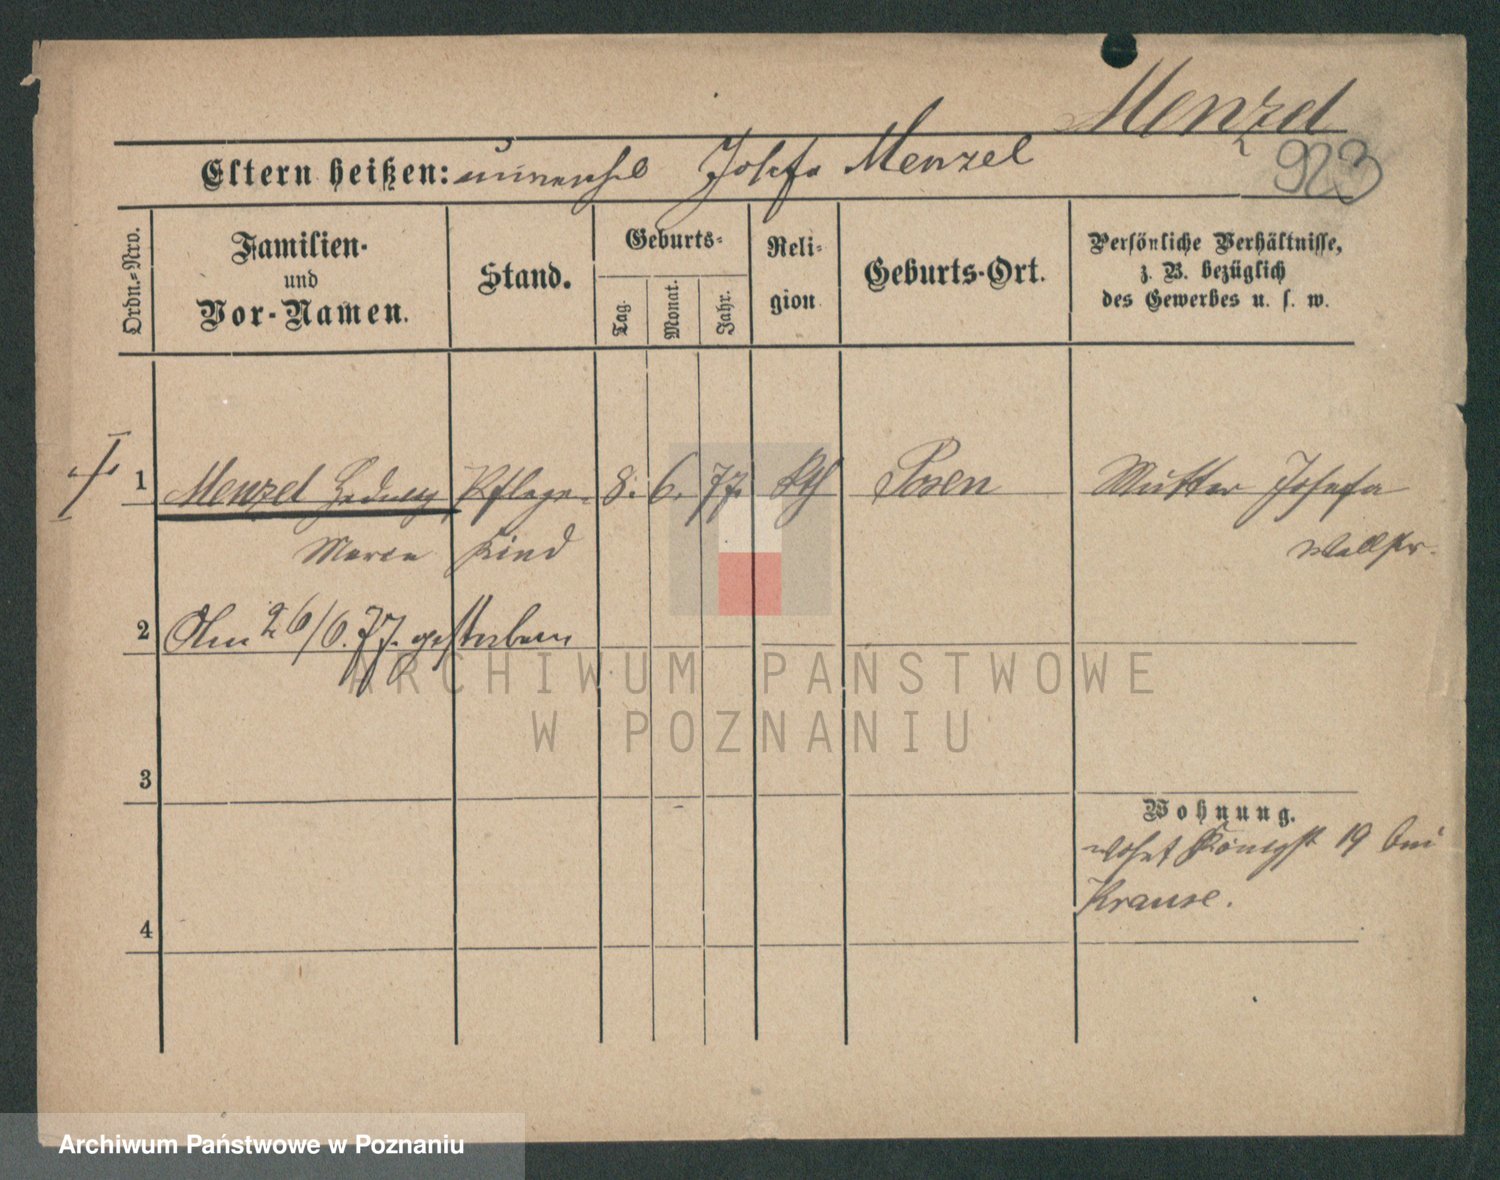 Menzel
923
Eltern heißen: unverehel Josefa Menzel
Ordn.-Nro.
Familien-
und
Vor-Namen.
Stand.
Geburts-
Tag.
Monat.
Jahr.
Reli-
gion
Geburts-Ort.
Persönliche Verhältnisse,
z. B. bezüglich
des Gewerbes u. s. w.
1 Menzel Hedwig Pflege- 8. 6. 77. Kth Posen Mutter Josefa
Maria Kind
2 Am 26/6. 77. gestorben
ARCHIWUM PAŃSTWOWE
W POZNANIU
3
Wohnung.
wohnt Königst 19 bei
Krause.
4
Archiwum Państwowe w Poznaniu